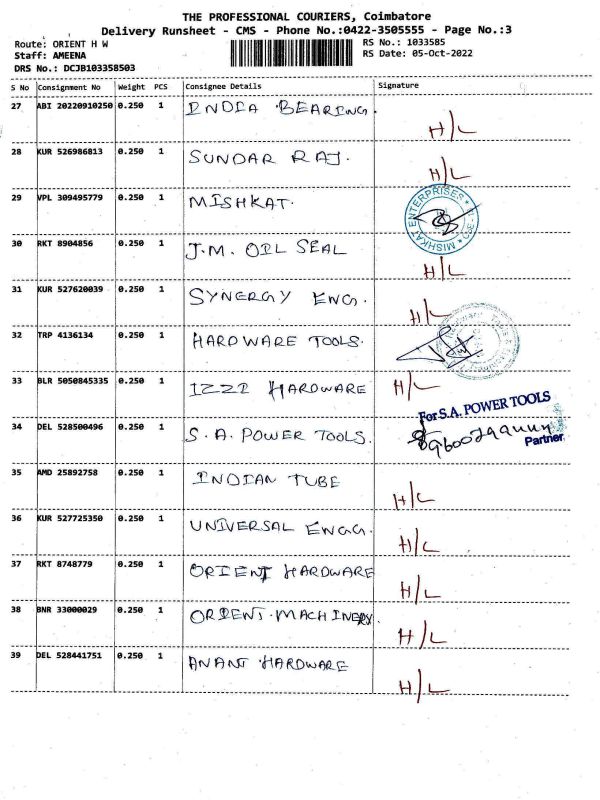 THE PROFESSIONAL COURIERS, Coimbatore
Delivery Runsheet - CMS - Phone No.:0422-3505555 - Page No.:3
Route: ORIENT H W RS No.: 1033585
Staff: AMEENA RS Date: 05-Oct-2022
DRS No.: DCJB103358503
S No Consignment No Weight PCS Consignee Details Signature
27 ABI 20220910250 0.250 1 INDIA BEARING. H/L
28 KUR 526986813 0.250 1 SUNDAR RAJ. H/L
29 VPL 309495779 0.250 1 MISHKAT. MISHKAT ENTERPRISES
30 RKT 8904856 0.250 1 J.M. OIL SEAL H/L
31 KUR 527620039 0.250 1 SYNERGY ENG. H/L
32 TRP 4136134 0.250 1 HARDWARE TOOLS.
33 BLR 5050845335 0.250 1 IZZI HARDWARE H/L
34 DEL 528500496 0.250 1 S.A. POWER TOOLS. For S.A. POWER TOOLS
Partner
35 AMD 25892758 0.250 1 INDIAN TUBE H/L
36 KUR 527725350 0.250 1 UNIVERSAL ENGG. H/L
37 RKT 8748779 0.250 1 ORIENT HARDWARE H/L
38 BNR 33000029 0.250 1 ORIENT MACHINERY. H/L
39 DEL 528441751 0.250 1 ANANT HARDWARE H/L